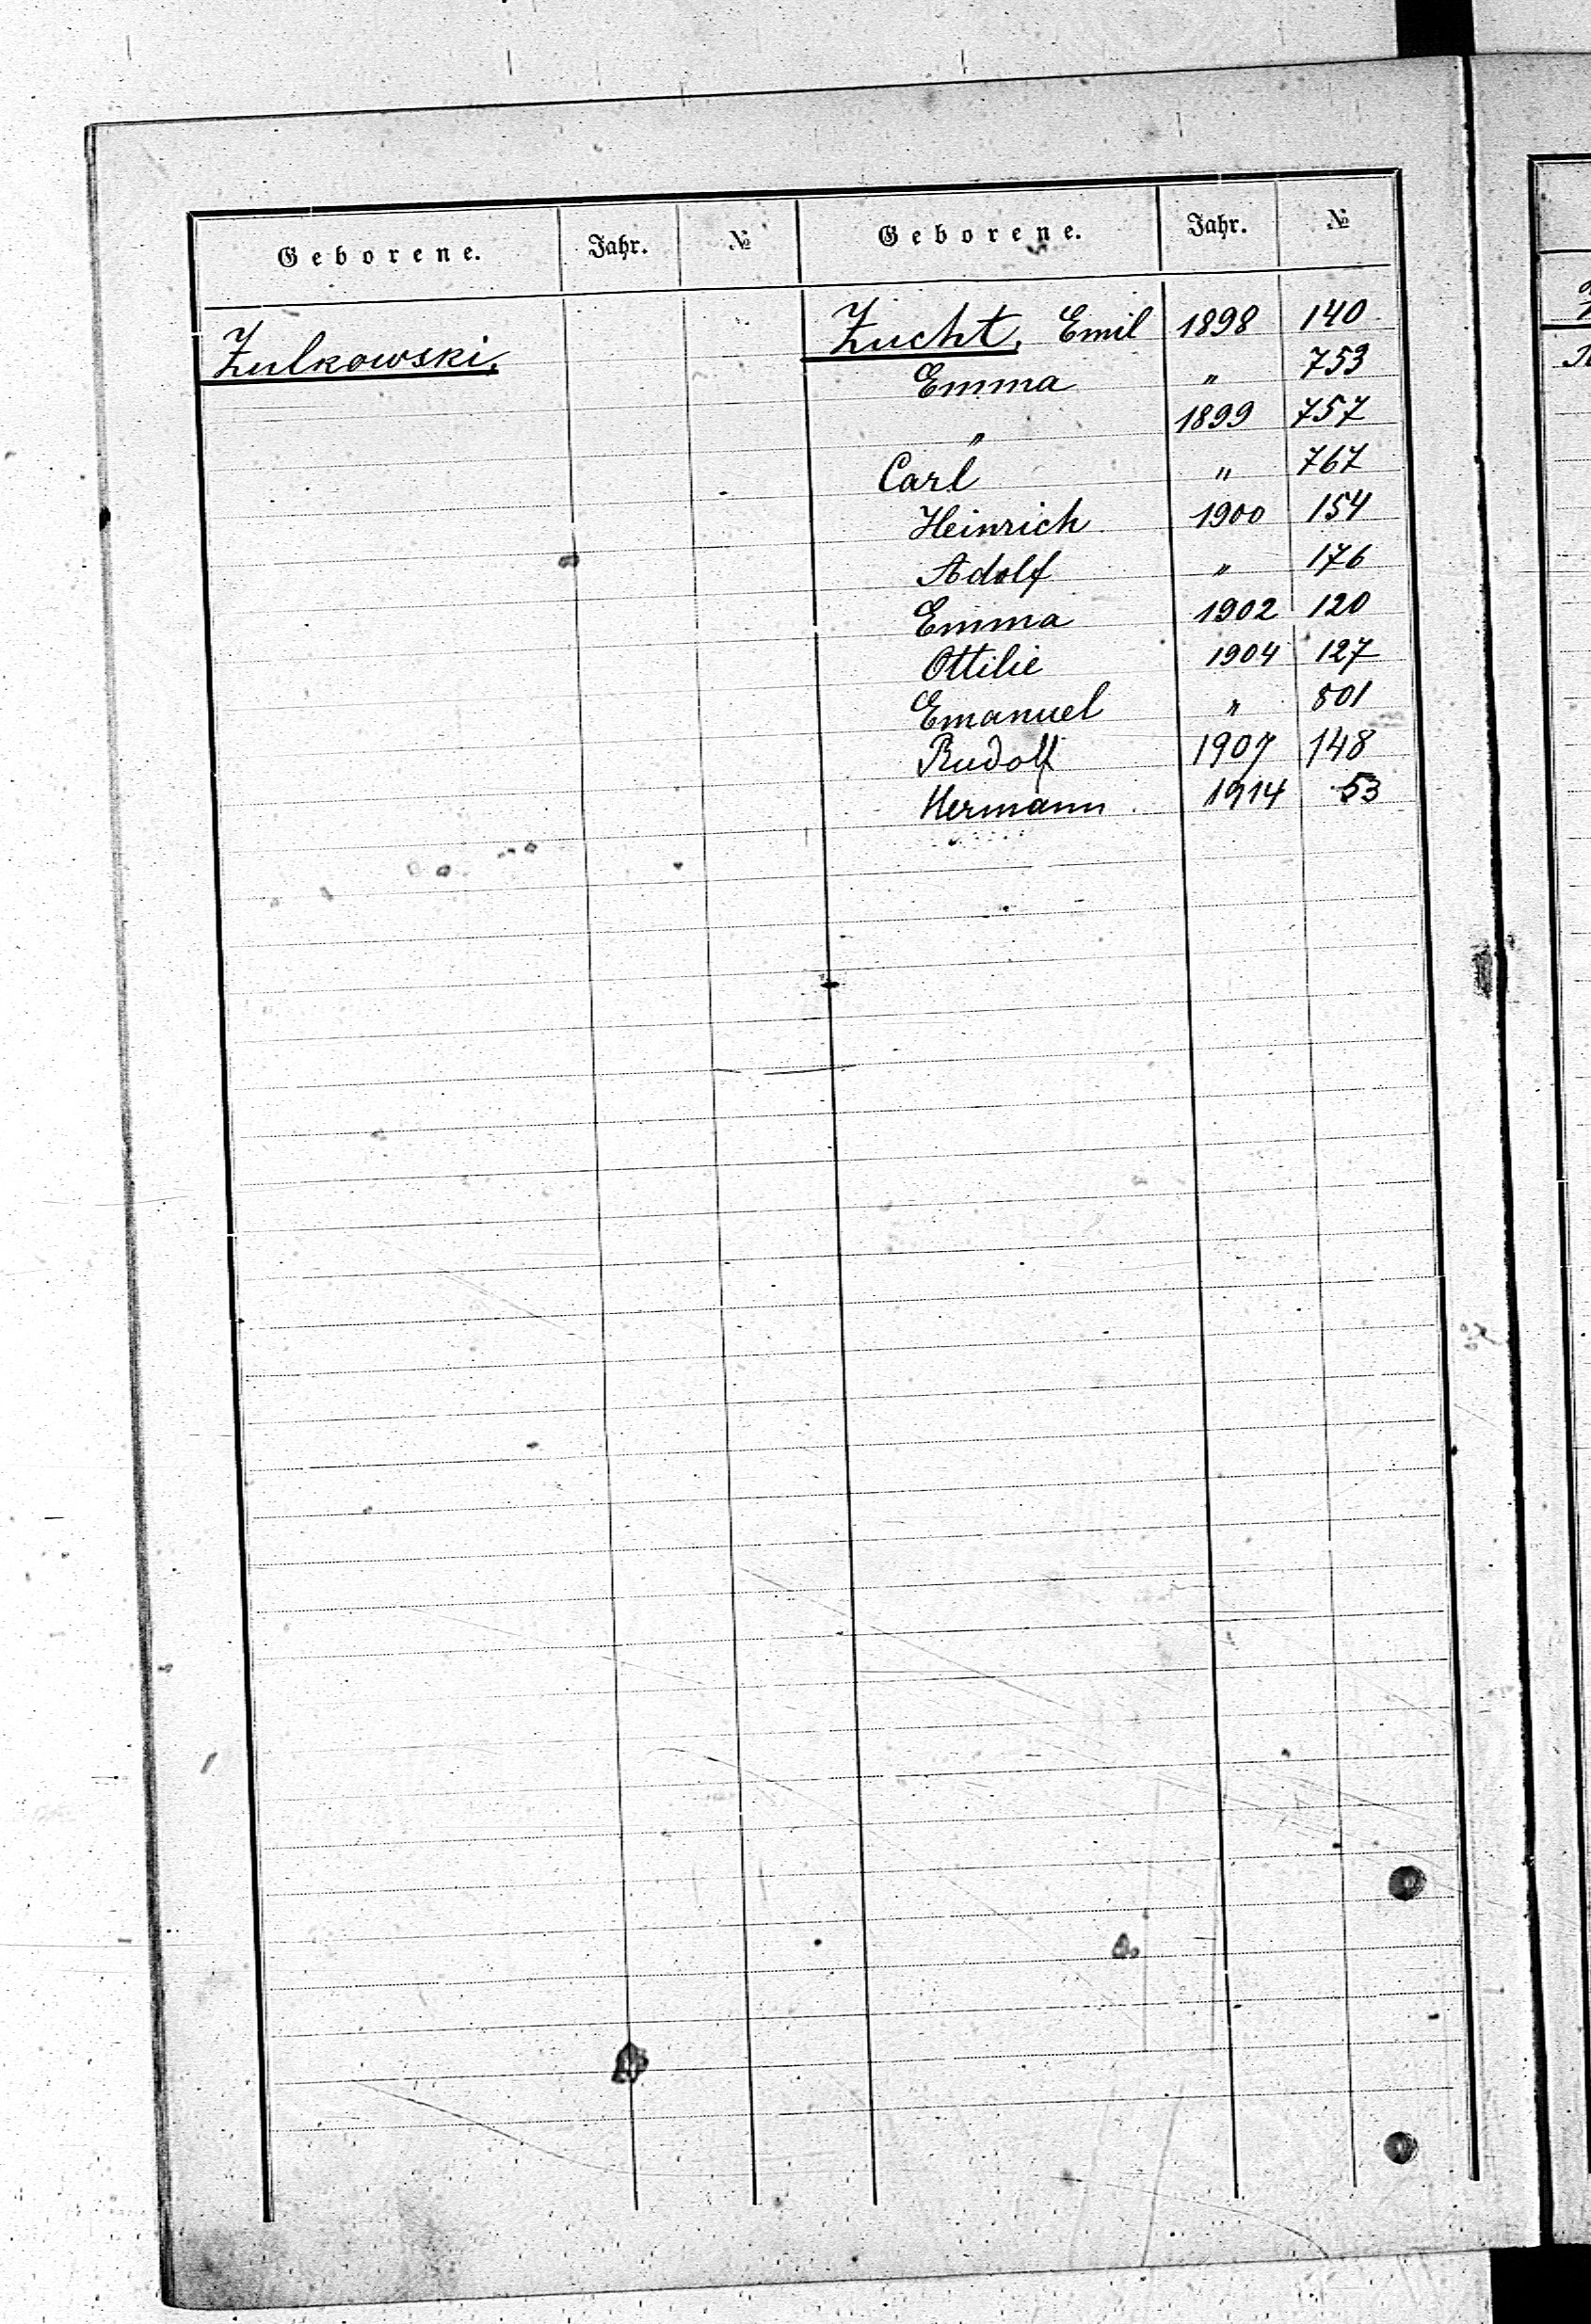 Geborene. Jahr. № Geborene. Jahr. №
Zulkowski.
Zucht, Emil 1898 140
Emma " 753
" 1899 757
Carl " 767
Heinrich 1900 154
Adolf " 176
Emma 1902 120
Ottilie 1904 127
Emanuel " 801
Rudolf 1907 148
Hermann 1914 53